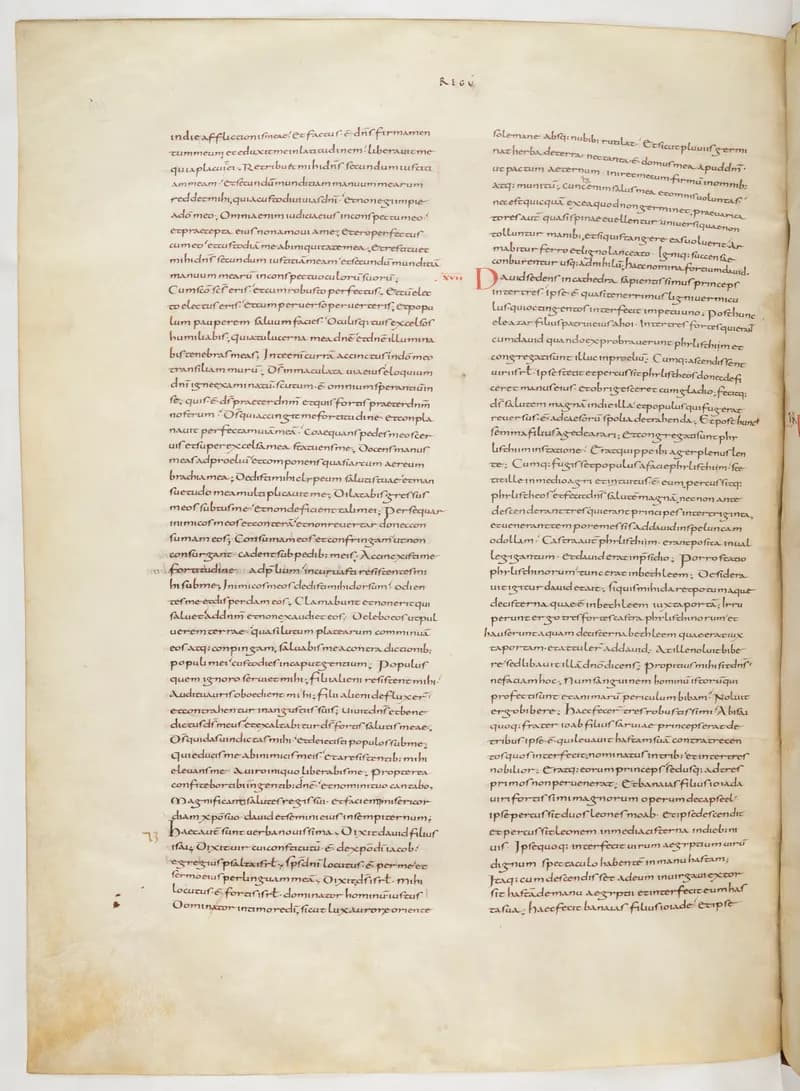 REGŪ
indie afflictionis meae. et factus ē dn̄s firmamen
tum meum et eduxit me in latitudinem. liberavit me
quia placui ei. Retribuet mihi dn̄s secundum iustiti
am meam. et secundū munditiam manuum mearum
reddet mihi, quia custodivi vias dn̄i. et non egi impie
a dō meo. Omnia enim iudicia eius in conspectu meo.
et praecepta eius non amovi a me. et ero perfectus
cum eo. et custodiā me ab iniquitate mea. et restituet
mihi dn̄s secundum iustitiā meam. et secundū munditiā
manuum mearū in conspectu oculorū suorū.
Cum scō scs̄ eris. et cum robusto perfectus. et cū elec
to electus eris. et cum perverso perverteris. et popu
lum pauperem salvum facies. Oculisq; tuis excelsos
humiliabis. quia tu lucerna mea dn̄e et dn̄e illumina
bis tenebras meas. In te enim currā accinctus in dō meo
transiliam murū. Ds̄ immaculata via eius eloquium
dn̄i igne examinatū. scutum ē omnium sperantium in
se. quis ē ds̄ praeter dn̄m et quis fortis praeter dn̄m
nostrum. Ds̄ qui accingit me fortitudine. et conpla
navit perfectam viā meā. Coaequans pedes meos cer
vis et super excelsa mea statuens me. Docens manus
meas ad proelium. et componens quasi arcum aereum
brachia mea. Dedisti mihi clypeum salutis tuae. et man
suetudo mea multiplicavit me. Dilatabis gressus
meos subtus me. et non deficient tali mei. Persequar
inimicos meos et conterā. et non revertar donec con
sumam eos. Consumam eos et confringam ut non
consurgant. cadent sub pedib; meis. Accinxisti me
fortitudine ad plium. incurvasti resistentes mi
hi sub me. Inimicos meos dedisti mihi dorsum. odien
tes me et disperdam eos. Clamabunt et non erit qui
salvet. ad dn̄m et non exaudiet eos. Delebo eos ut pul
verem terrae. quasi lutum platearum comminuā
eos atq; conpingam. salvabis me a contradictionib;
populi mei. custodies in caput gentium. Populus
quem ignoro serviet mihi. filii alieni resistent mihi.
Auditu auris oboedient mihi. filii alieni defluxer̄
et contrahentur in angustiis suis. vivit dn̄s et bene
dictus ds̄ meus. et exaltabitur ds̄ fortis salutis meae.
Ds̄ qui das vindictas mihi. et deicis populos sub me.
qui educis me ab inimicis meis. et a resistentib; mihi
elevans me. A viro iniquo liberabis me. Propterea
confitebor tibi in gentib; dn̄e. et nomini tuo cantabo.
Magnificanti salutes regis sui. et facienti misericor
diam xp̄o suo david et semini eius in sempiternum.
Haec autē sunt verba novissima. Dixit david filius
isai. Dixit vir cui constitutū ē de xp̄o dī iacob.
egregius psalta isrl̄. sps̄ dn̄i locutus ē per me et
sermo eius per linguam meā. Dixit ds̄ isrl̄. mihi
locutus ē fortis isrl̄. dominator hominū iustus
Dominator in timore dī. sicut lux aurorae oriente
sole mane absq; nubib; rutilat. et sicut pluviis germi
nat herba de terra. nec tanta ē domus mea apud dm̄.
ut pactum aeternum iniret mecum firmū in omnib;
atq; munitū. cuncta enim salus mea et omnis voluntas.
nec est quicquā ex ea quod non germinet. praevarica
tores autē quasi spinae evellentur universi quae non
tolluntur manib; et si quis tangere eas voluerit. ar
mabitur ferro et ligno lanceato. igniq; succensae
conburentur usq; ad nihilū. haec nomina fortium david.
XVII David sedens in cathedra sapientissimus princeps
inter tres. ipse ē quasi tenerrimus ligni vermicu
lus. qui octingentos interfecit impetu uno. Post hunc
eleazar filius patrui eius ahoi. Inter tres fortes qui erāt
cum david quando exprobraverunt phylisthiim et
congregati sunt illuc in proeliū. Cumq; ascendissent
viri isrl̄. ipse stetit et percussit phylistheos donec defi
ceret manus eius et obrigesceret cum gladio. fecitq;
ds̄ salutem magnā in die illa. et populus qui fugerat
reversus ē ad caesorū spolia detrahenda. Et post hunc
semma filius age de arari. et congregati sunt phy
listhiim in statione. Erat quippe ibi ager plenus len
te. Cumq; fugisset populus a facie phylisthiim. ste
tit ille in medio agri et tuitus ē eum. percussitq;
phylistheos et fecit dn̄s salutē magnā. necnon ante
descenderant tres qui erant principes inter triginta,
et venerant tempore messis ad david in speluncam
odollam. Castra autē phylisthim erant posita in val
le gigantum. et david erat in p̄sidio. Porro statio
phylisthinorum tunc erat in bethleem. Desidera
vit igitur david et ait. si quis mihi daret potum aquae
de cisterna quae ē in bethleem iuxta portā. Irru
perunt ergo tres fortes castra phylisthinorum. et
hauserunt aquam de cisterna bethleem quae erat iux
ta portam. et attuler̄ ad david. At ille noluit bibe
re. sed libavit illā dn̄o dicens. Propitius mihi sit dn̄s
ne faciam hoc. Num sanguinem hominū istorū qui
profecti sunt et animarū periculum bibam. Noluit
ergo bibere. Haec fecer̄ tres robustissimi. Abisai
quoq; frater ioab filius sarviae princeps erat de
tribus. ipse ē qui levavit hastam suā contra trecen
tos quos interfecit. nominatus in trib; et inter tres
nobilior. Eratq; eorum princeps sed usq; ad tres
primos non pervenerat. Et banaias filius ioiada
viri fortissimi magnorum operum de capseel.
ipse percussit duos leones moab. et ipse descendit
et percussit leonem in media cisterna in dieb; ni
vis. Ipse quoq; interfecit virum aegyptium virū
dignum spectaculo habentē in manu hastam.
Itaq; cum descendisset ad eum in virga vi extor
sit hastā de manu aegypti et interfecit eum has
ta sua. haec fecit banaias filius ioiade. et ipse